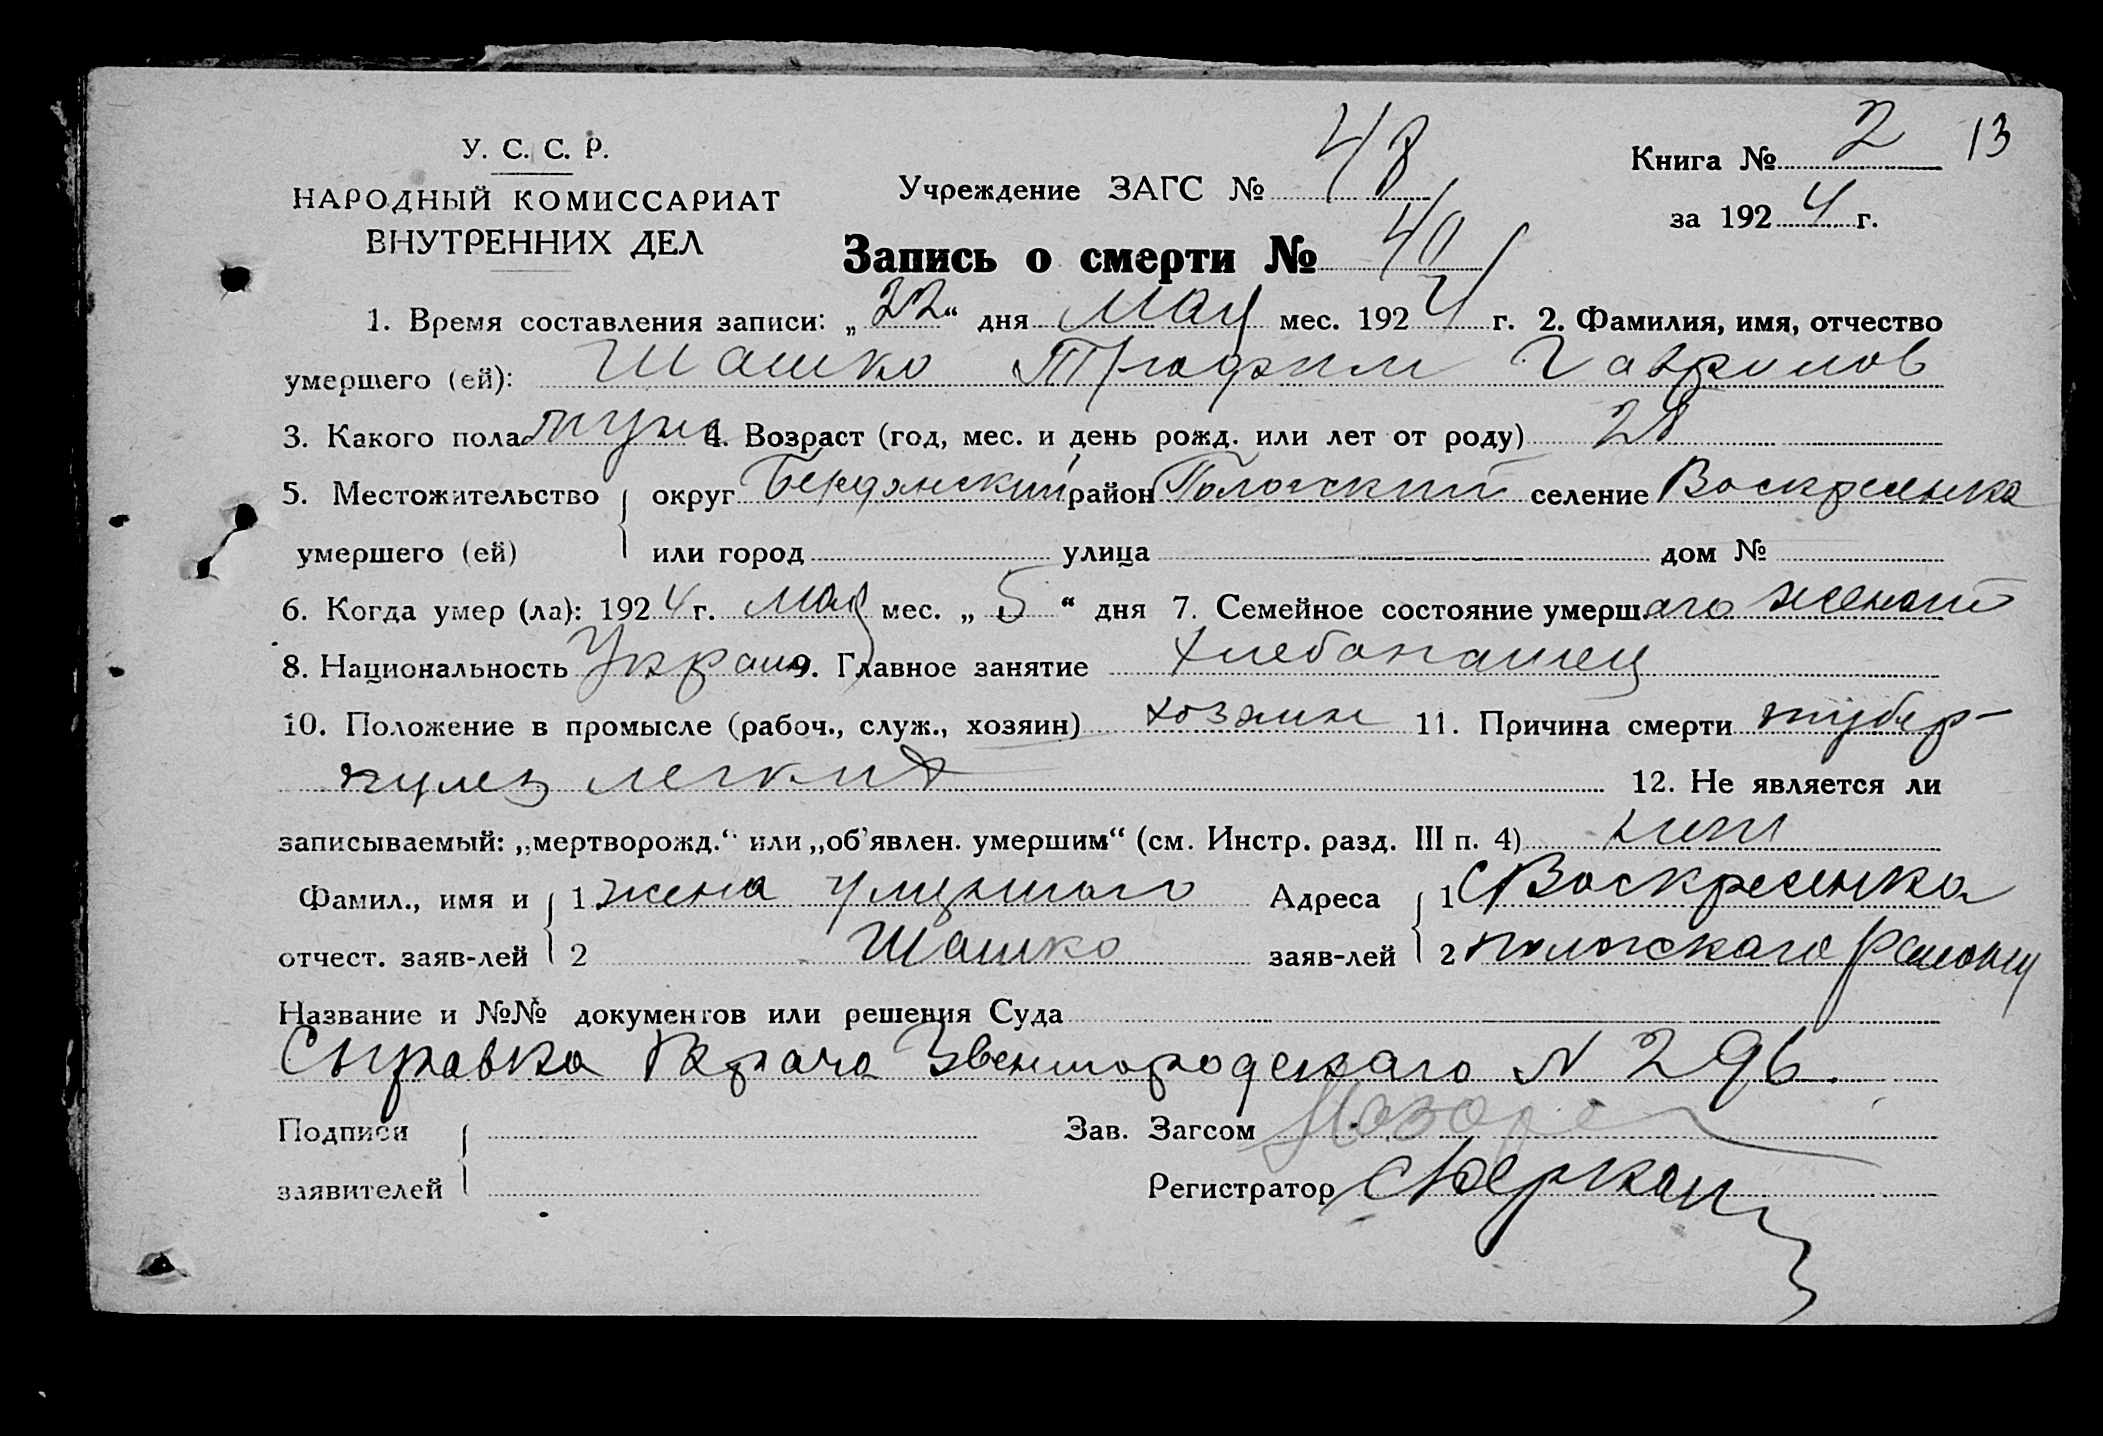 У. С. С. Р.
НАРОДНЫЙ КОМИССАРИАТ
ВНУТРЕННИХ ДЕЛ
Учреждение ЗАГС № 48
Книга № 2 13
за 1924 г.
Запись о смерти № 40
1. Время составления записи: „22“ дня мая мес. 1924 г. 2. Фамилия, имя, отчество
умершего (ей): Шашко Трофим Гаврилов
3. Какого пола муж 4. Возраст (год, мес. и день рожд. или лет от роду) 28
5. Местожительство округ Бердянский район Пологский селение Воскресенка
умершего (ей) или город улица дом №
6. Когда умер (ла): 1924 г. мая мес. „5“ дня 7. Семейное состояние умерш.аго женат
8. Национальность Украин 9. Главное занятие хлебопашец
10. Положение в промысле (рабоч., служ., хозяин) хозяин 11. Причина смерти тубер-
кулез легких
12. Не является ли
записываемый: „мертворожд.“ или „об'явлен. умершим“ (см. Инстр. разд. III п. 4) нет
Фамил., имя и 1 жена умершаго Адреса 1 С Воскресенка
отчест. заяв-лей 2 Шашко заяв-лей 2 пологскаго района
Название и №№ документов или решения Суда
Справка Врача Звенигородскаго N 296.
Подписи Зав. Загсом
заявителей Регистратор